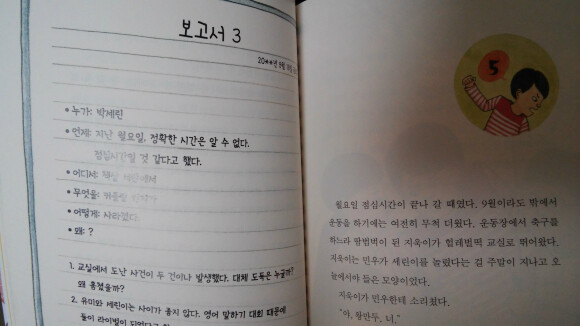 보고서 3
20**년 9월
• 누가: 박세린
• 언제: 지난 월요일, 정확한 시간은 알 수 없다.
점심시간일 것 같다고 했다.
• 어디서: 책상
• 무엇을:
• 어떻게: 사라졌다
• 왜: ?
1. 교실에서 도난 사건이 두 건이나 발생했다. 대체 도둑은 누굴까?
왜 훔쳤을까?
2. 유미와 세린이는 사이가 좋지 않다. 영어 말하기 대회 때문에
둘이 라이벌이 되었다고
5
월요일 점심시간이 끝나 갈 때였다. 9월이라도 밖에서
운동을 하기에는 여전히 무척 더웠다. 운동장에서 축구를
하느라 땀범벅이 된 지욱이가 헐레벌떡 교실로 뛰어왔다.
지욱이는 민우가 세린이를 놀렸다는 걸 주말이 지나고 오
늘에서야 들은 모양이었다.
지욱이가 민우한테 소리쳤다.
"야, 왕만두, 너."